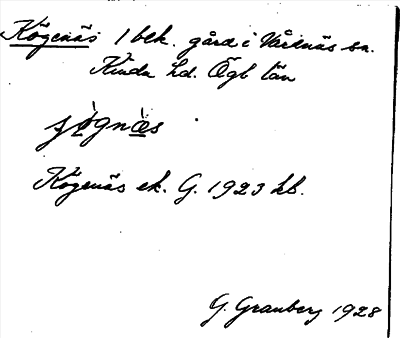 Kögenäs 1 bek. gård i Vårdnäs sn.
Kinda hd. Ögl län
Kögenäs ek. G. 1923 hb.
G. Granberg 1928